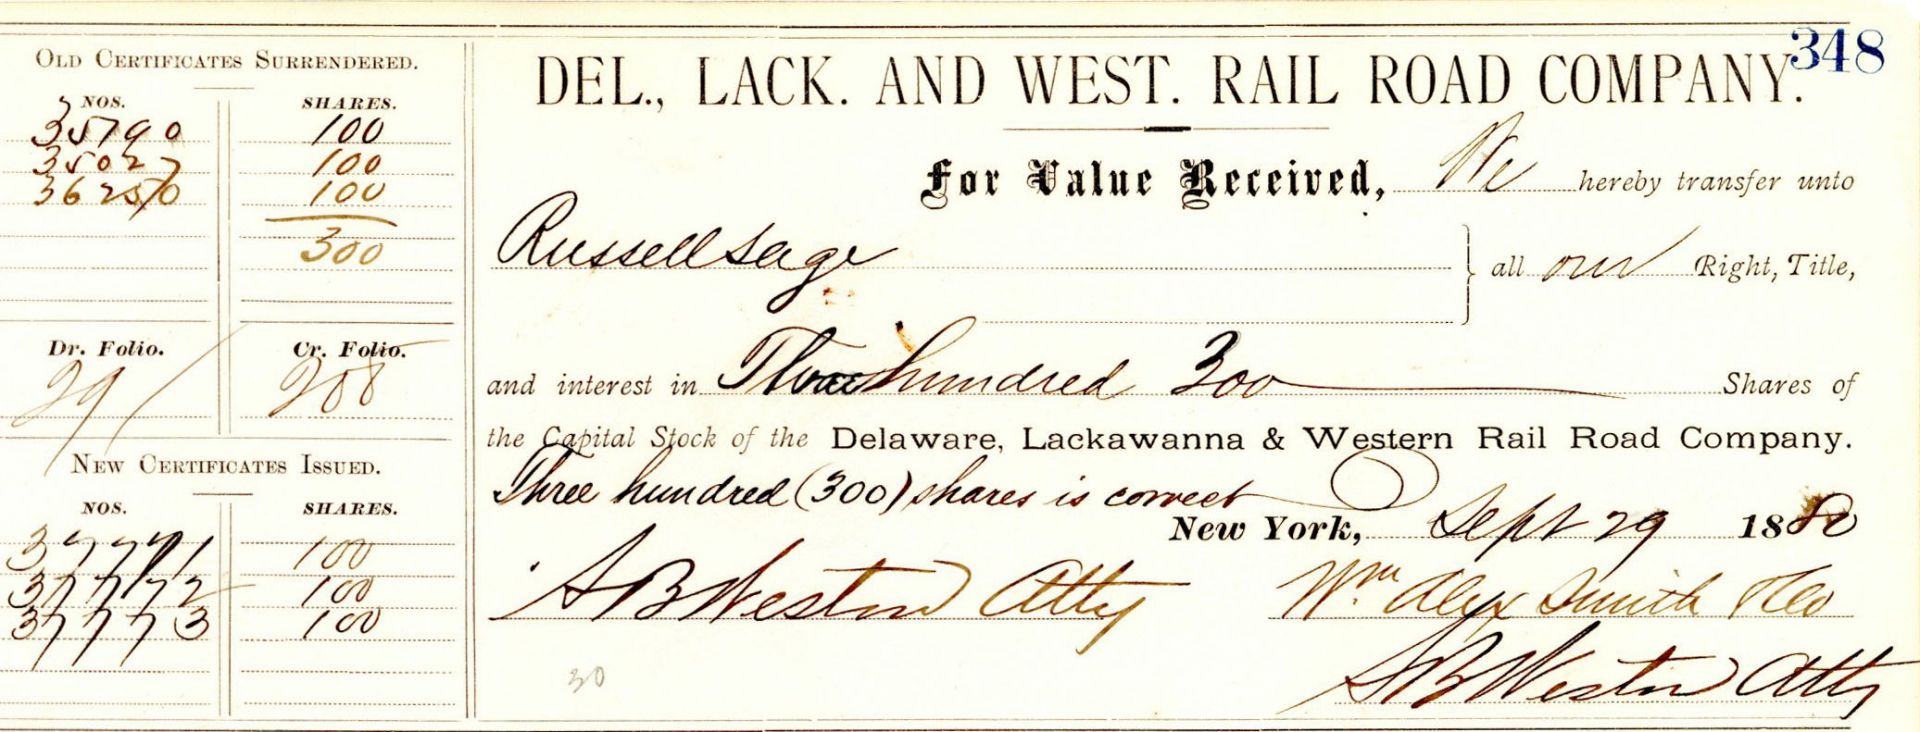 348
DEL., LACK. AND WEST. RAIL ROAD COMPANY.
For Value Received, We hereby transfer unto
Russell Sage
all our Right, Title,
and interest in Three hundred 300 Shares of
the Capital Stock of the Delaware, Lackawanna & Western Rail Road Company.
Three hundred (300) shares is correct
New York, Sept 29 1880
S B Weston Atty Wm Alex Smith & Co
S B Weston Atty
30
OLD CERTIFICATES SURRENDERED.
NOS. SHARES.
35790 100
35027 100
36250 100
300
Dr. Folio. Cr. Folio.
29 208
NEW CERTIFICATES ISSUED.
NOS. SHARES.
37771 100
37772 100
37773 100